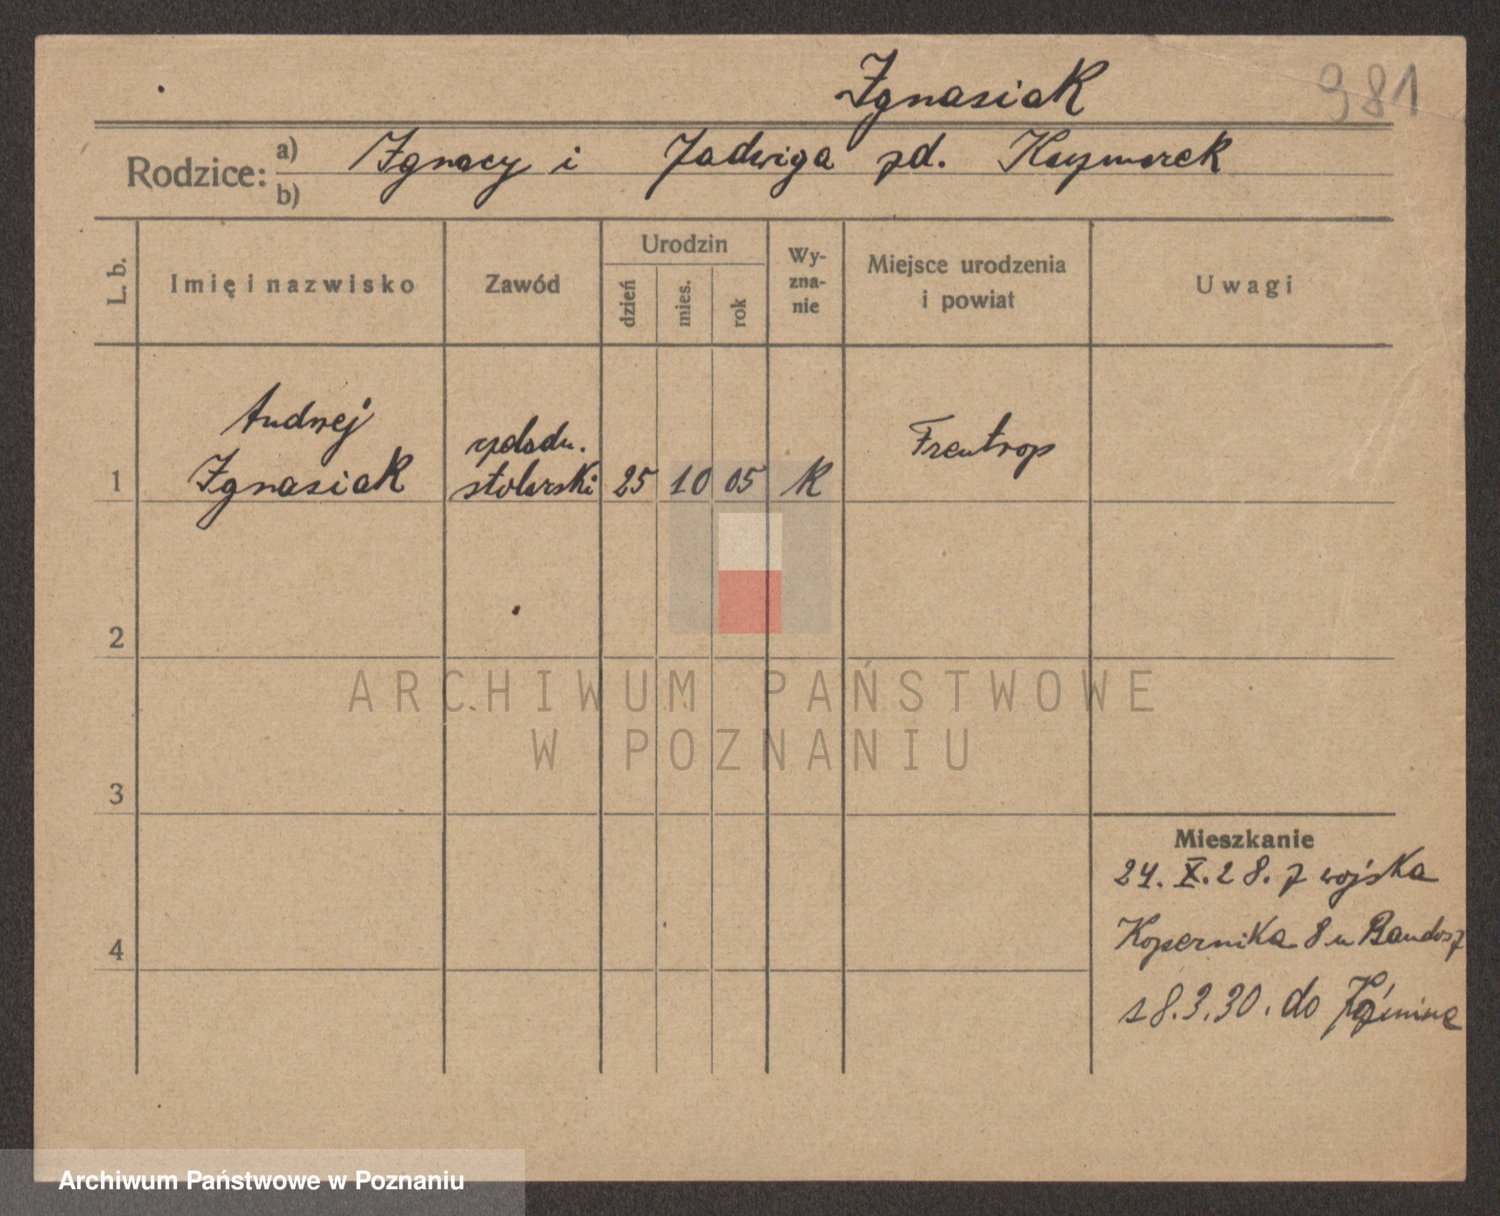 Ignasiak
981
Rodzice: a) Ignacy i Jadwiga zd. Kaymarek
b)
L. b.
Imię i nazwisko
Zawód
Urodzin
dzień
mies.
rok
Wy-
zna-
nie
Miejsce urodzenia
i powiat
Uwagi
Andrzej
czeladn.
Frentrop
1 Ignasiak stolarski 25 10 05 K
2
ARCHIWUM PAŃSTWOWE
W POZNANIU
3
Mieszkanie
24. X. 28. z wojska
Kopernika 8 u
4
8.3.30. do
Archiwum Państwowe w Poznaniu